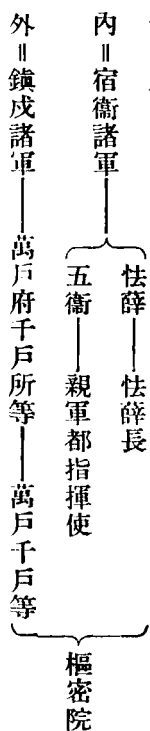 內＝宿衞諸軍
怯薛——怯薛長
五衞——親軍都指揮使
外＝鎭戍諸軍——萬戶府千戶所等——萬戶千戶等
樞密院